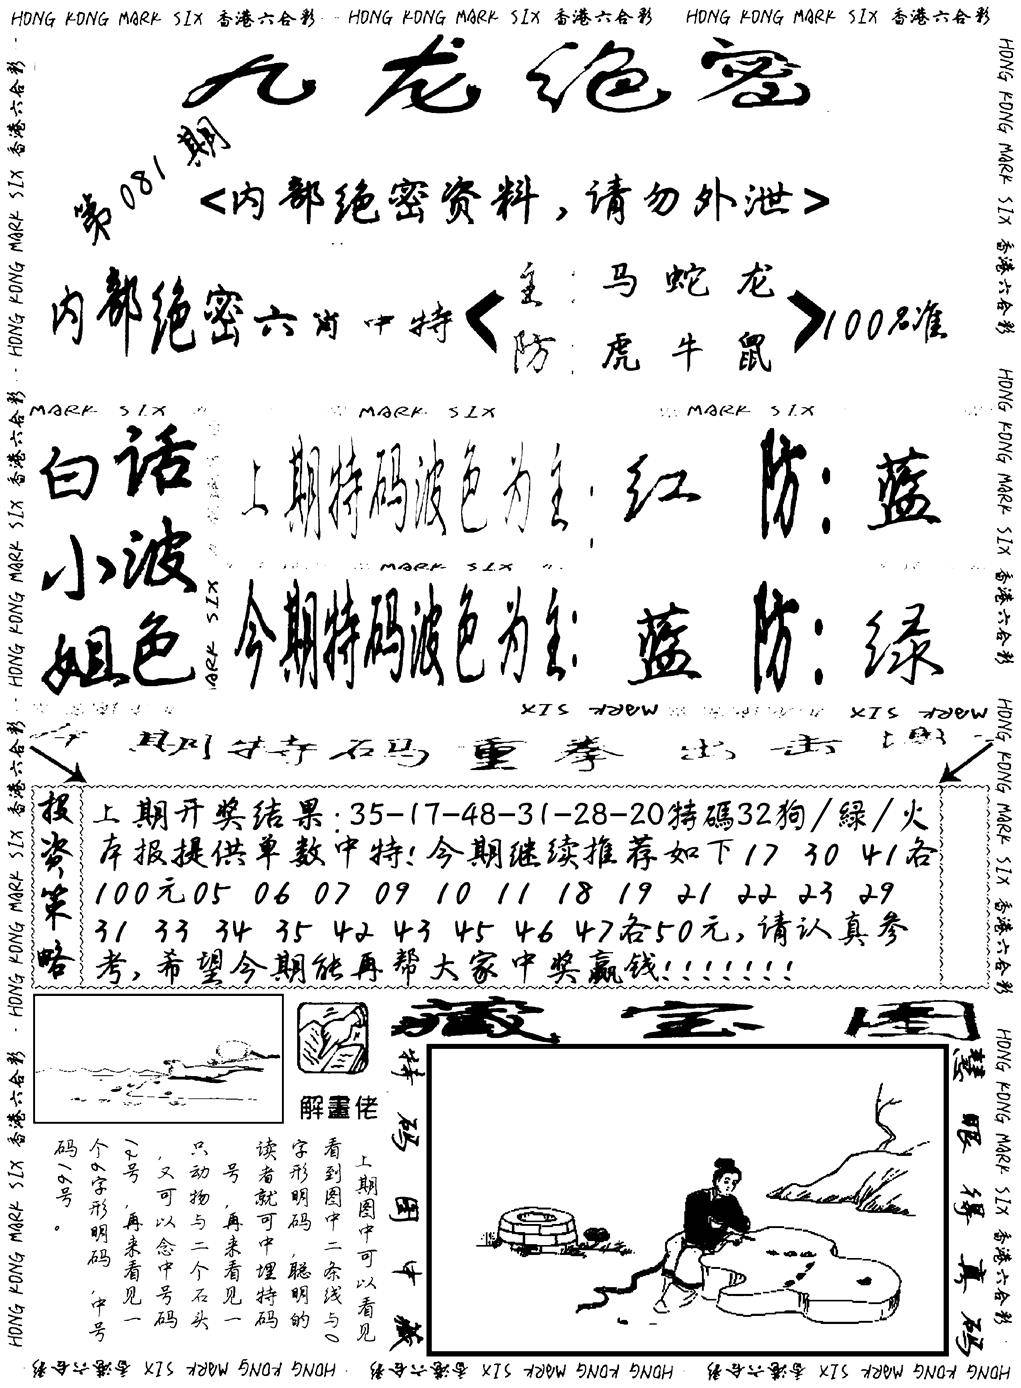 HONG KONG MARK SIX 香港六合彩 HONG KONG MARK SIX 香港六合彩 HONG KONG MARK SIX 香港六合彩
九龙绝密
第081期
<内部绝密资料,请勿外泄>
内部绝密六肖中特
主:马蛇龙
防:虎牛鼠
100%准
MARK SIX MARK SIX MARK SIX
白话小波姐色
上期特码波色为主:红 防:蓝
MARK SIX
今期特码波色为主:蓝 防:绿
MARK SIX MARK SIX
今期特码重拳出击
投资策略
上期开奖结果:35-17-48-31-28-20特碼32狗/緑/火
本报提供单数中特!今期继续推荐如下17 30 41各
100元05 06 07 09 10 11 18 19 21 22 23 29
31 33 34 35 42 43 45 46 47各50元,请认真参
考,希望今期能再帮大家中奖赢钱!!!!!!!
解畫佬
上期图中可以看见
看到图中二条线与0
字形明码,聪明的
读者就可中埋特码
号,再来看见一
只动物与二个石头
,又可以念中号码
12号,再来看见一
个9字形明码,中号
码19号。
藏宝图
特码图中藏
慧眼得真码
HONG KONG MARK SIX 香港六合彩 HONG KONG MARK SIX 香港六合彩 HONG KONG MARK SIX 香港六合彩